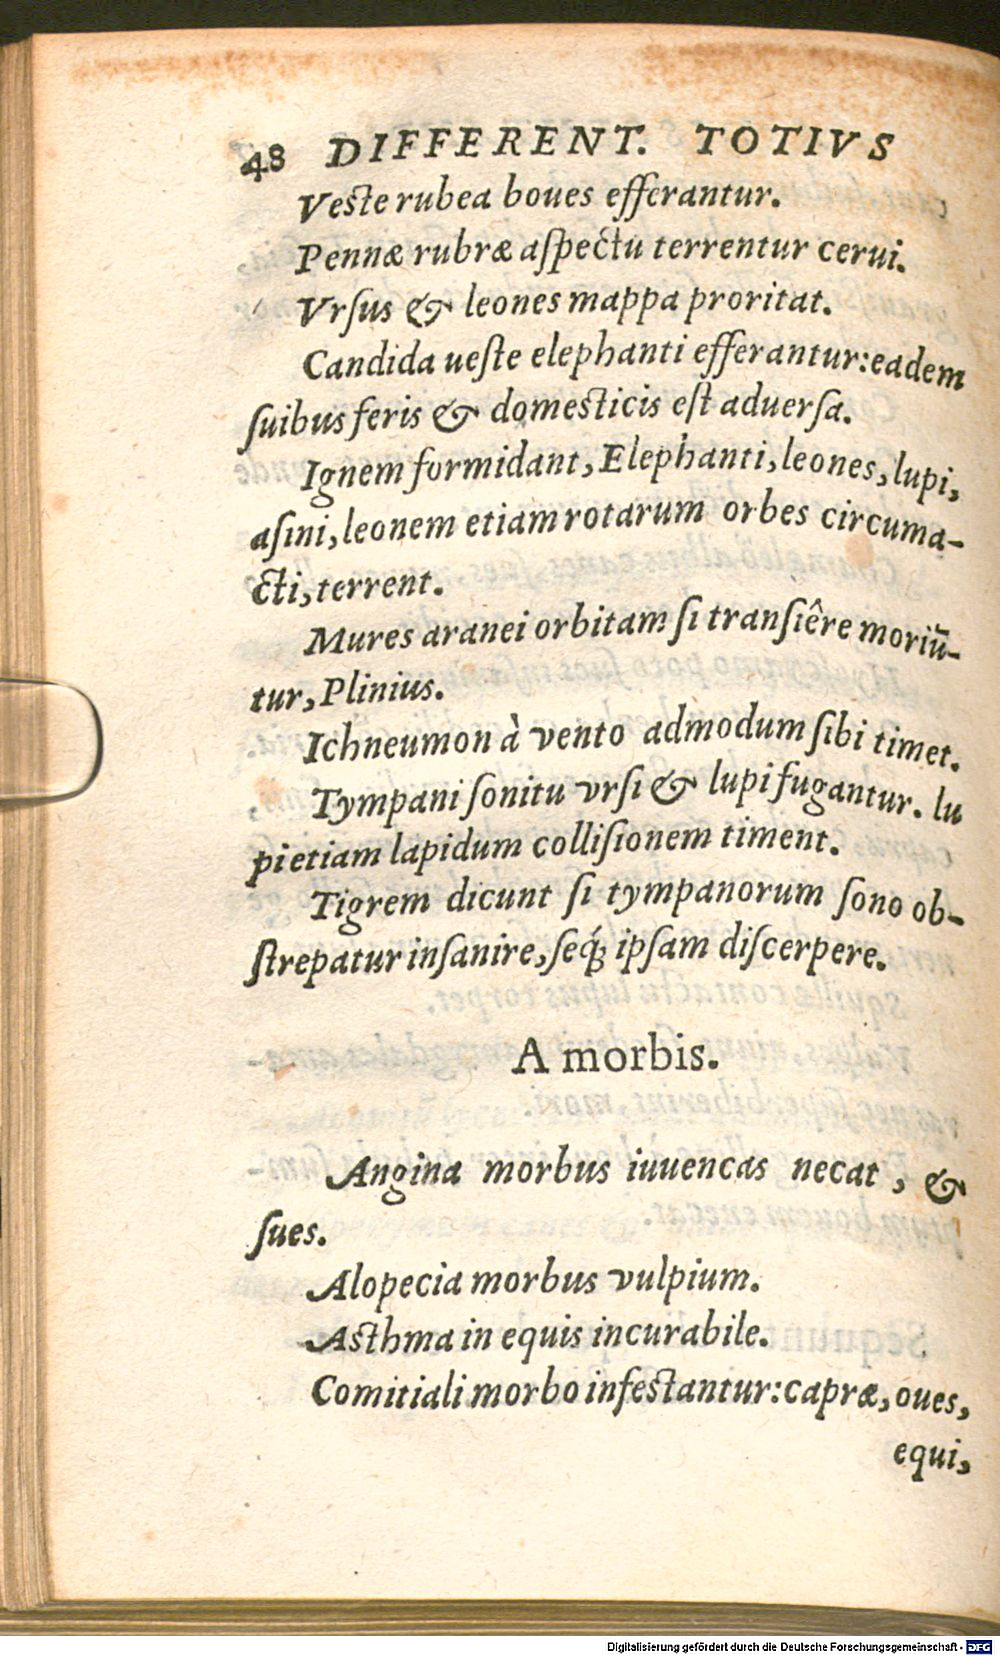 48 DIFFERENT. TOTIVS
Veste rubea boues efferantur.
Pennæ rubræ aſpectu terrentur cerui.
Vrſus & leones mappa proritat.
Candida ueſte elephanti efferantur: eadem
ſuibus feris & domesticis eſt aduerſa.
Ignem formidant, Elephanti, leones, lupi,
aſini, leonem etiam rotarum orbes circuma-
cti, terrent.
Mures aranei orbitam ſi tranſiêre moriũ-
tur, Plinius.
Ichneumon à vento admodum ſibi timet.
Tympani ſonitu vrſi & lupi fugantur. lu
pi etiam lapidum colliſionem timent.
Tigrem dicunt ſi tympanorum ſono ob-
ſtrepatur inſanire, ſeq́; ipſam diſcerpere.
A morbis.
Angina morbus iuuencas necat, &
ſues.
Alopecia morbus vulpium.
Asthma in equis incurabile.
Comitiali morbo infestantur: capræ, oues,
equi,
Digitalisierung gefördert durch die Deutsche Forschungsgemeinschaft - DFG